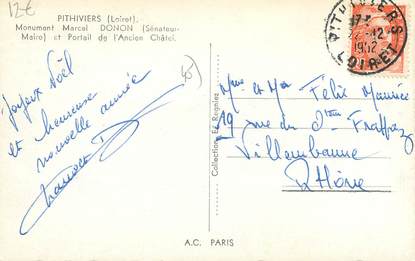 12€
PITHIVIERS (Loiret).
Monument Marcel DONON (Sénateur-
Maire) et Portail de l'Ancien Châtel.
PITHIVIERS
12
1952
LOIRET
45
Joyeux Noël
et heureuse
nouvelle année
Mme et Mr Félix Maurice
19 rue du
Villeurbanne
Rhône
Collections Ed. Regnier
A.C. PARIS